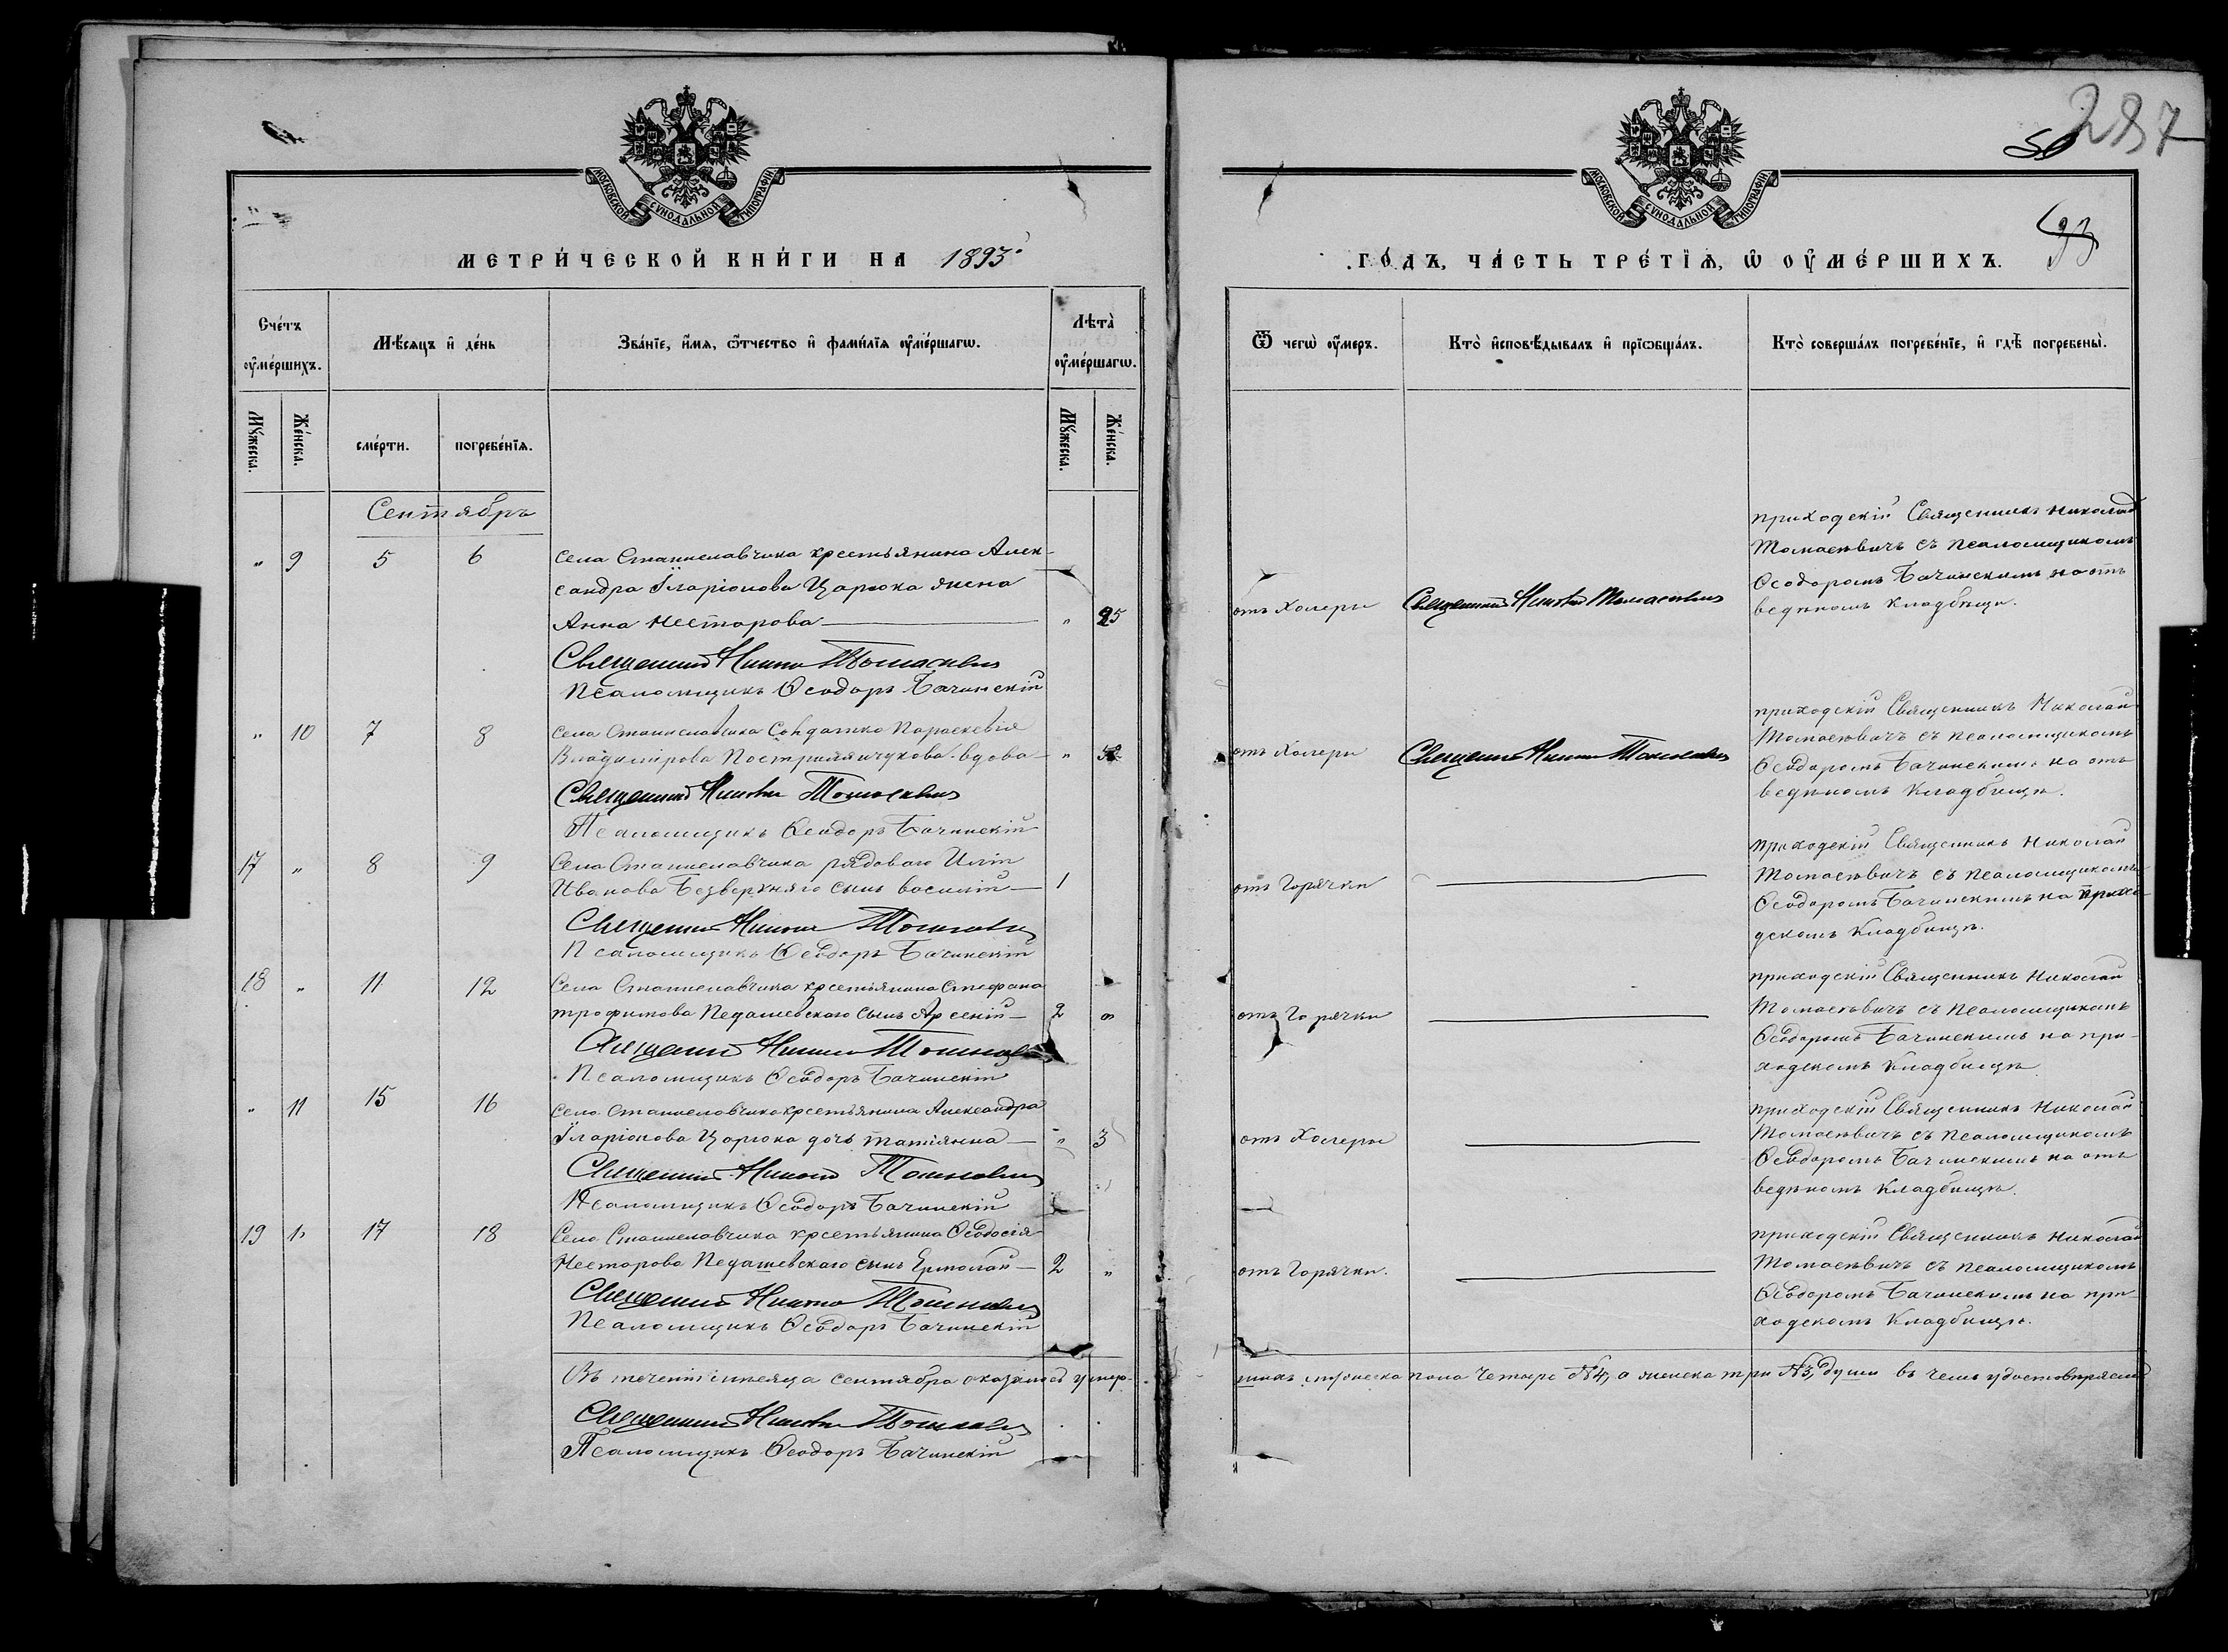 287
50
93
МОСКОВСКОЙ СѴНОДАЛЬНОЙ ТИПОГРАФІИ
МЕТРИ́ЧЕСКОЙ КНИ́ГИ НА 1893
МОСКОВСКОЙ СѴНОДАЛЬНОЙ ТИПОГРАФІИ
ГО́ДЪ, ЧА́СТЬ ТРЕ́ТІѦ, Ѡ҆ ОУ҆МЕ́РШИХЪ.
Сче́тъ оу҆ме́ршихъ.
Мѣ́сѧцъ и҆ де́нь
Зва́нїе, и҆́мѧ, ѻ҆́тчество и҆ фами́лїѧ оу҆ме́ршагѡ.
Лѣта̀ оу҆ме́ршагѡ.
Ѿ чегѡ̀ оу҆́меръ.
Кто̀ и҆сповѣ́дывалъ и҆ прїѡбща́лъ.
Кто̀ соверша́лъ погребе́нїе, и҆ гдѣ̀ погребены̀.
Мꙋ́жеска.
Же́нска.
сме́рти.
погребе́нїѧ.
Мꙋ́жеска.
Же́нска.
Сентябрь
" 9 5 6 Села Станиславчика крестьянина Алек-
сандра Іларіонова Царюка жена
Анна Несторова " 25
Священникъ Николай Томасевичъ
Псаломщикъ Ѳеодоръ Бачинскій
отъ Холеры
Священникъ Николай Томасевичъ
приходскій Священникъ Николай
Томасевичъ съ псаломщикомъ
Ѳеодоромъ Бачинскимъ на от-
веденомъ кладбищѣ.
" 10 7 8 Села Станиславчика Солдатка Параскевія
Владимірова вдова "
Священникъ Николай Томасевичъ
Псаломщикъ Ѳеодоръ Бачинскій
отъ Холеры
Священникъ Николай Томасевичъ
приходскій Священникъ Николай
Томасевичъ съ псаломщикомъ
Ѳеодоромъ Бачинскимъ на от-
веденомъ кладбищѣ.
17 " 8 9 Села Станиславчика рядового Иліи
Иванова Безверхняго сынъ Василій 1
Священникъ Николай Томасевичъ
Псаломщикъ Ѳеодоръ Бачинскій
отъ Горячки
приходскій Священникъ Николай
Томасевичъ съ псаломщикомъ
Ѳеодоромъ Бачинскимъ на прихо-
дскомъ кладбищѣ.
18 " 11 12 Села Станиславчика крестьянина Стефана
Трофимова Педашевскаго сынъ Арсеній 2 "
Священникъ Николай Томасевичъ
Псаломщикъ Ѳеодоръ Бачинскій
отъ Горячки
приходскій Священникъ Николай
Томасевичъ съ псаломщикомъ
Ѳеодоромъ Бачинскимъ на при-
ходскомъ кладбищѣ
" 11 15 16 Села Станиславчика крестьянина Александра
Іларіонова Царюка дочь Татіянна " 3
Священникъ Николай Томасевичъ
Псаломщикъ Ѳеодоръ Бачинскій
отъ Холеры
приходскій Священникъ Николай
Томасевичъ съ псаломщикомъ
Ѳеодоромъ Бачинскимъ на от-
веденомъ кладбищѣ.
19 " 17 18 Села Станиславчика крестьянина Ѳеодосія
Несторова Педашевскаго сынъ Ермолай 2 "
Священникъ Николай Томасевичъ
Псаломщикъ Ѳеодоръ Бачинскій
отъ Горячки.
приходскій Священникъ Николай
Томасевичъ съ псаломщикомъ
Ѳеодоромъ Бачинскимъ на при-
ходскомъ кладбищѣ.
Въ теченіи мѣсяца сентября оказалось умер-
шихъ мужеска пола четыре №4, а женска три №3, души въ чемъ удостовѣряемъ
Священникъ Николай Томасевичъ
Псаломщикъ Ѳеодоръ Бачинскій